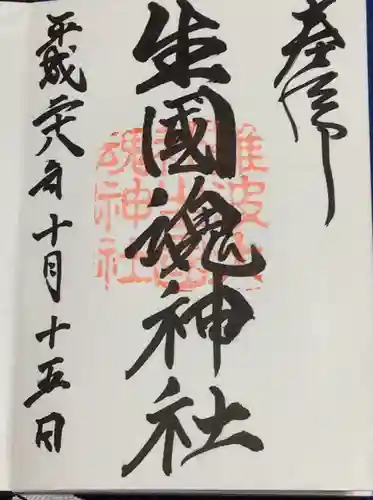 奉拝
生國魂神社
難波大社
生國魂神社
平成二十八年十月十五日